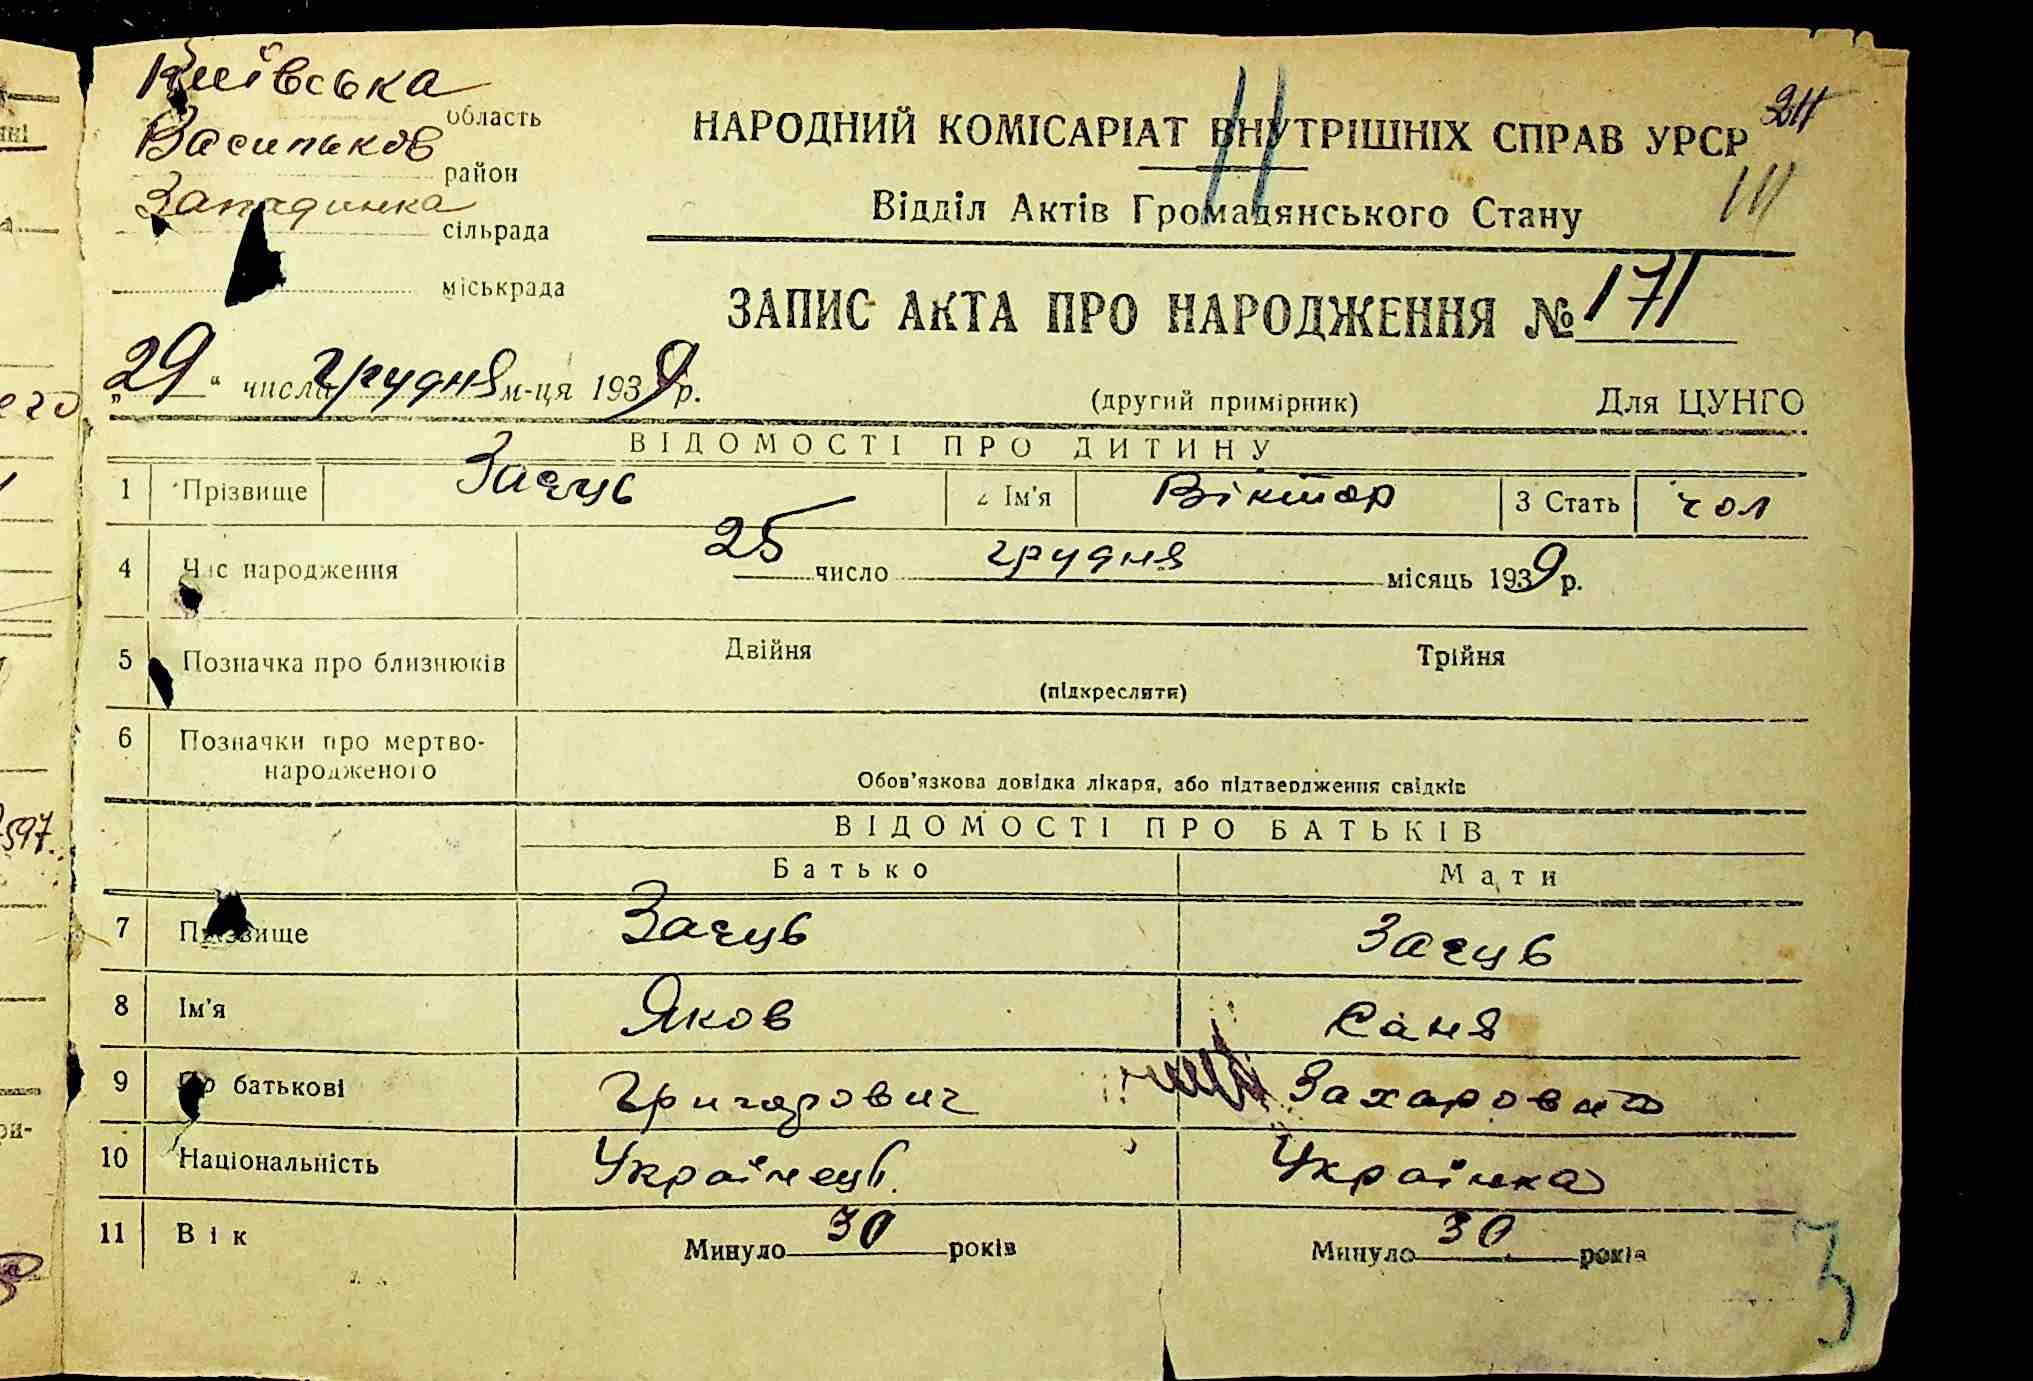 Київська область
Васильков район
Западинка сільрада
міськрада
НАРОДНИЙ КОМІСАРІАТ ВНУТРІШНІХ СПРАВ УРСР
Відділ Актів Громадянського Стану
ЗАПИС АКТА ПРО НАРОДЖЕННЯ № 171
„29“ числа грудня м-ця 1939 р.
(другий примірник) Для ЦУНГО
ВІДОМОСТІ ПРО ДИТИНУ
1 Прізвище Заєць 2 Ім'я Віктор 3 Стать чол
4 Час народження 25 число грудня місяць 1939 р.
5 Позначка про близнюків Двійня Трійня
(підкреслити)
6 Позначки про мертво-
народженого
Обов'язкова довідка лікаря, або підтвердження свідків
ВІДОМОСТІ ПРО БАТЬКІВ
Батько Мати
7 Прізвище Заєць Заєць
8 Ім'я Яков Саня
9 По батькові Григорович Захаровна
10 Національність Українець Українка
11 Вік Минуло 30 років Минуло 30 років
3